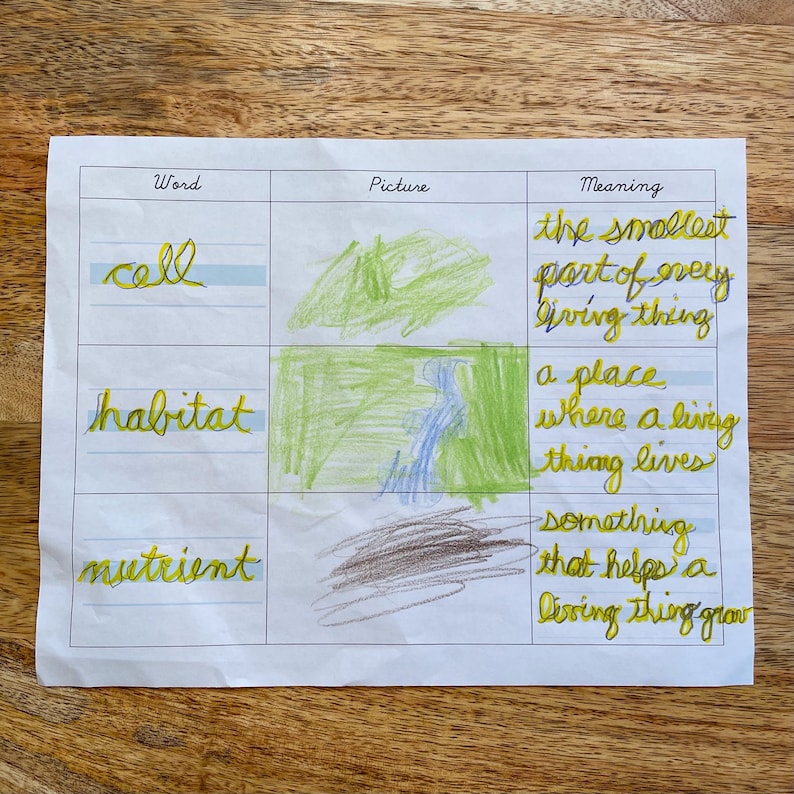 Word Picture Meaning
cell
the smallest
part of every
living thing
habitat
a place
where a living
thing lives
nutrient
something
that helps a
living thing grow